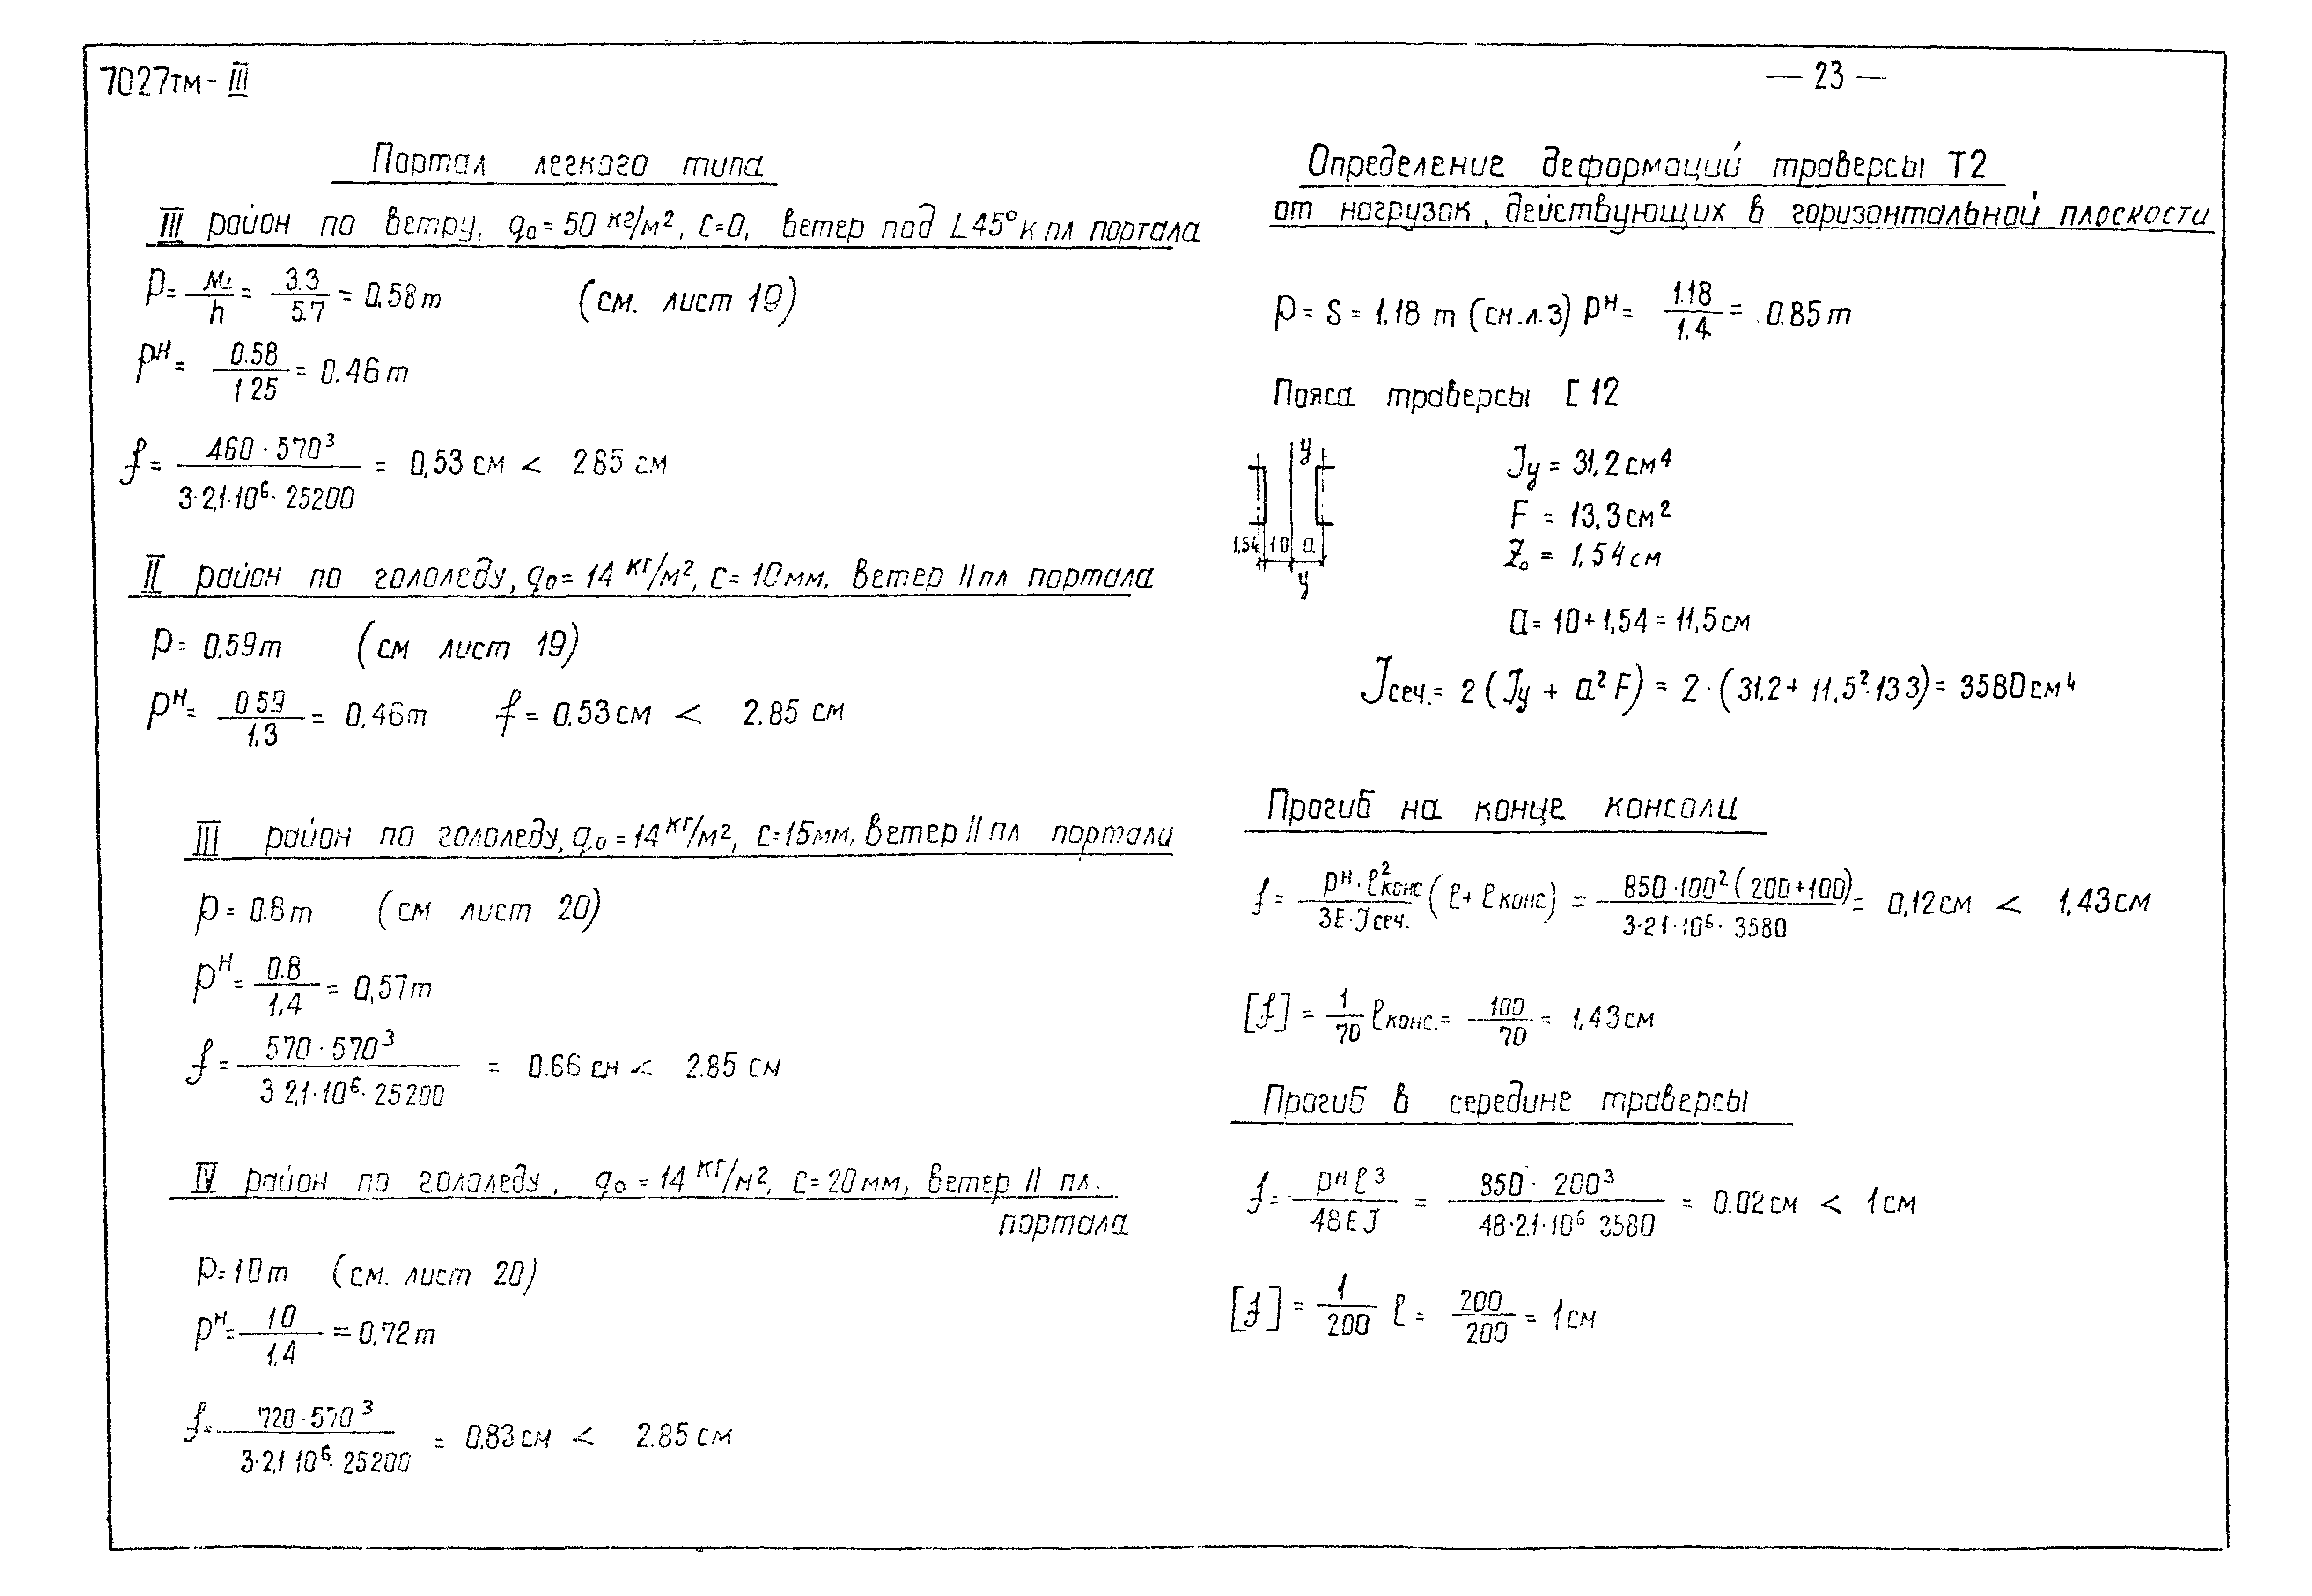 7027тм-III
— 23 —
Портал легкого типа
III район по ветру, q₀=50 кг/м², C=0, ветер под L45° к пл портала
P = M₁/h = 3.3/5.7 = 0,58 т (см. лист 19)
Pᴴ = 0.58/1 25 = 0.46 т
f = 460·570³/3·2,1·10⁶·25200 = 0,53 см < 285 см
II район по гололеду, q₀=14 кг/м², C=10мм, ветер II пл портала
P = 0.59т (см лист 19)
Pᴴ = 0 59/1,3 = 0,46т f = 0.53см < 2.85 см
III район по гололеду, q₀=14 кг/м², C=15мм, ветер II пл портала
P = 0.8т (см лист 20)
Pᴴ = 0.8/1,4 = 0,57т
f = 570·570³/3 2,1·10⁶·25200 = 0.66 см < 2.85 см
IV район по гололеду, q₀=14 кг/м², C=20мм, ветер II пл.
портала
P=10т (см. лист 20)
Pᴴ = 10/1,4 = 0,72т
f = 720·570³/3·2,1 10⁶·25200 = 0,83см < 2.85 см
Определение деформаций траверсы Т2
от нагрузок, действующих в горизонтальной плоскости
P = S = 1,18 т (см.л.3) Pᴴ = 1.18/1.4 = 0.85т
Пояса траверсы [ 12
y
1,54 10 a
y
Jy = 31,2см⁴
F = 13,3см²
Z₀ = 1,54см
a = 10+1,54 = 11,5см
Jсеч. = 2 (Jy + a² F) = 2·(31.2+ 11,5²·13 3) = 3580см⁴
Прогиб на конце консоли
f = Pᴴ·ℓ²конс/3E·Jсеч. (ℓ+ ℓконс) = 850·100²(200+100)/3·2 1·10⁶·3580 = 0,12см < 1,43см
[f] = 1/70 ℓконс. = 100/70 = 1,43см
Прогиб в середине траверсы
f = Pᴴℓ³/48EJ = 850·200³/48·2,1·10⁶ 3580 = 0.02см < 1см
[f] = 1/200 ℓ = 200/200 = 1см